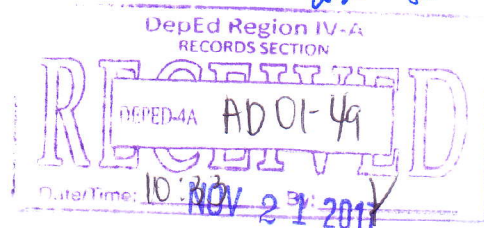 DepEd Region IV-A
RECORDS SECTION
RECEIVED
DEPED-4A AD 01-49
Date/Time: 10:33 NOV 21 2017 By: